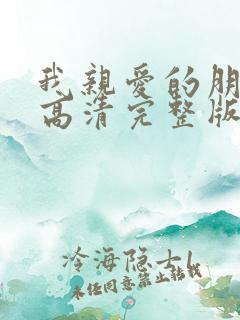 我親愛的朋
高清完整版
冷海隐士l
未经同意禁止转载